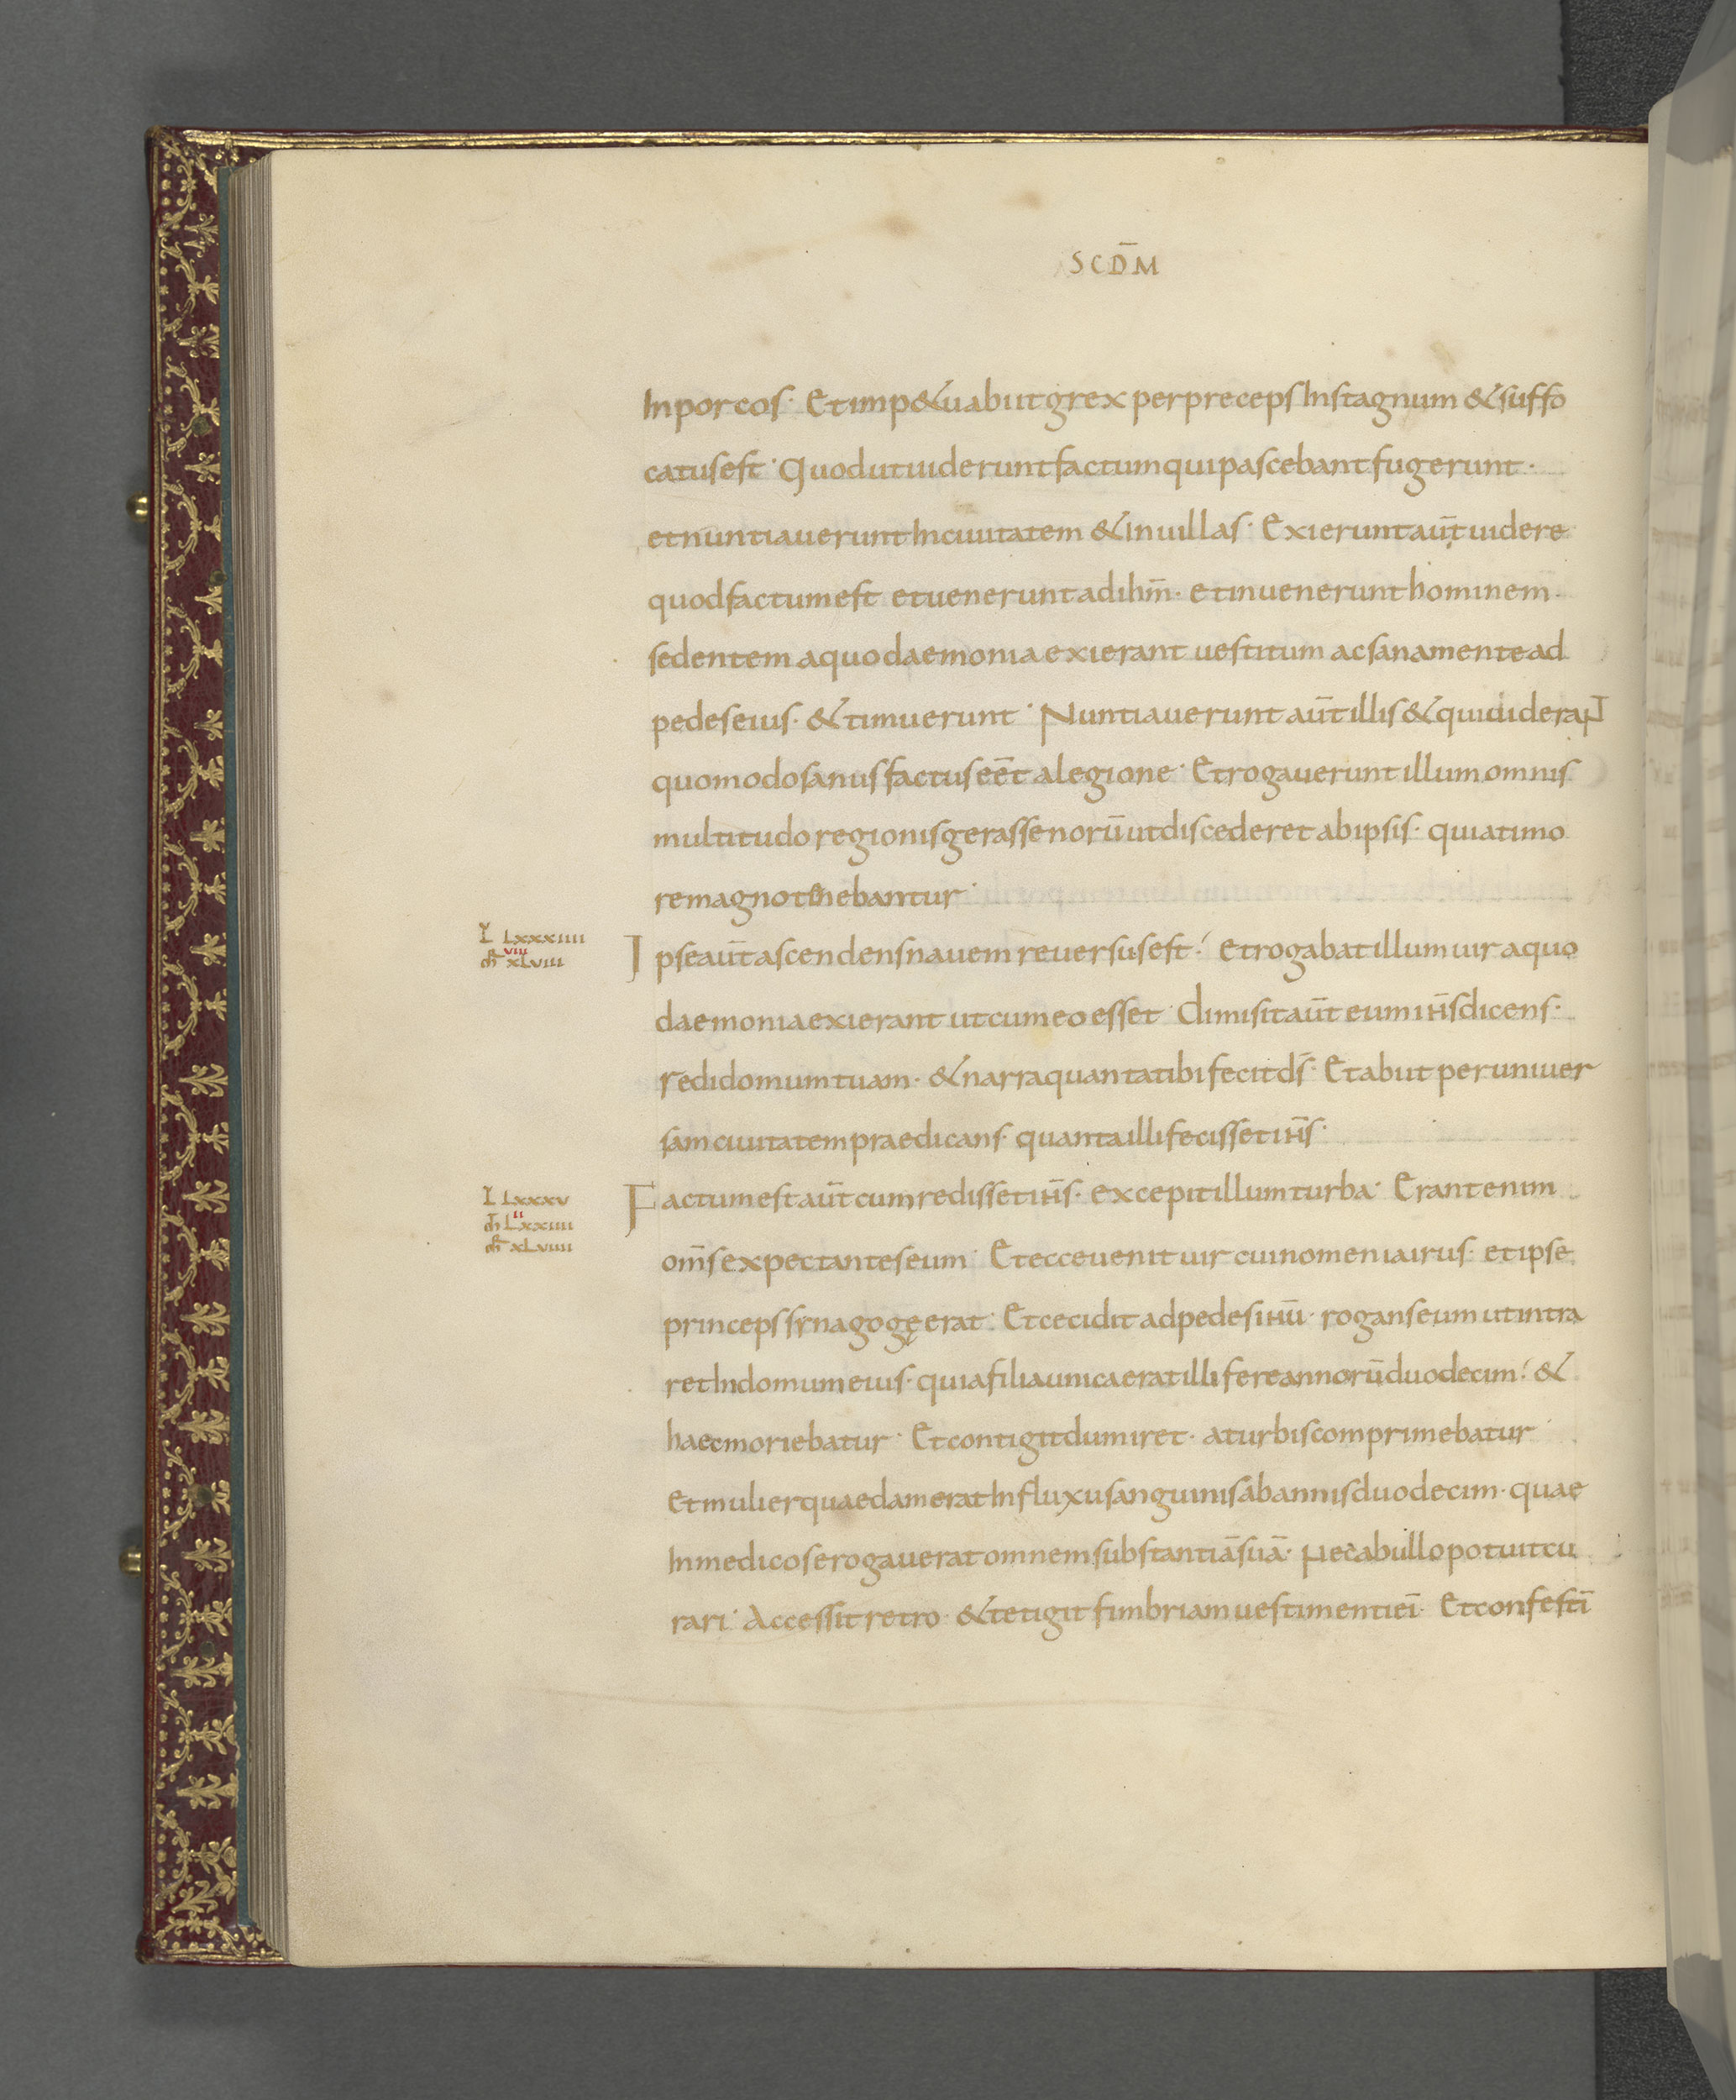 SCD̄M
In porcos · Et imp&u abiit grex per preceps In stagnum & suffo
catus est · Quod ut uiderunt factum qui pascebant fugerunt ·
et nuntiauerunt In ciuitatem & in uillas · Exierunt aūt uidere
quod factum est et uenerunt ad ihm̄ · et inuenerunt hominem ·
sedentem a quo daemonia exierant uestitum ac sana mente ad
pedes eius · & timuerunt · Nuntiauerunt aūt illis & qui uiderant
quomodo sanus factus eēt a legione · Et rogauerunt illum omnis
multitudo regionis gerassenorū ut discederet ab ipsis · quia timo
re magno tenebantur ·
L LXXXIIII
VIII
mr̄ XLVIII
Ipse aūt ascendens nauem reuersus est · Et rogabat illum uir a quo
daemonia exierant ut cum eo esset · dimisit aūt eum ih̄s dicens ·
redi domum tuam · & narra quanta tibi fecit ds̄ · Et abiit per uniuer
sam ciuitatem praedicans · quanta illi fecisset ih̄s ·
L LXXXV
II
mt̄ LXXIIII
mr̄ XLVIIII
Factum est aūt cum redisset ih̄s · excepit illum turba · Erant enim
om̄s expectantes eum · Et ecce uenit uir cui nomen iairus · et ipse
princeps synagogę erat · Et cecidit ad pedes ihū · rogans eum ut intra
ret In domum eius · quia filia unica erat illi fere annorū duodecim · &
haec moriebatur · Et contigit dum iret · a turbis comprimebatur ·
Et mulier quaedam erat In fluxu sanguinis ab annis duodecim · quae
In medicos erogauerat omnem substantiā suā · Nec ab ullo potuit cu
rari · Accessit retro · & tetigit fimbriam uestimenti eī · Et confestī